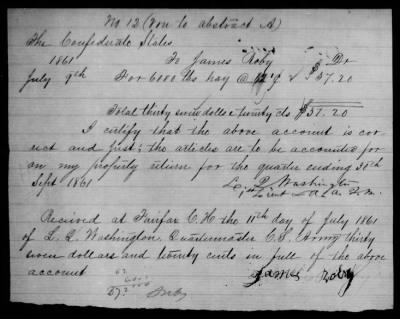 No 12 (Vou to abstract A)
The Confederate States
1861 To James Roby Dr
July 9th For 6000 lbs hay @ $37.20
Total thirty seven dolls & twenty cts $37.20
I certify that the above account is cor
rect and just; the articles are to be accounted for
on my property return for the quarter ending 30th
Sept 1861
L. Q. Washington
1st Lieut & A. A. Q. M.
Received at Fairfax C. H. the 11th day of July 1861
of L. Q. Washington, Quartermaster C. S. Army thirty
seven dollars and twenty cents in full of the above
account
James Roby
62
6000